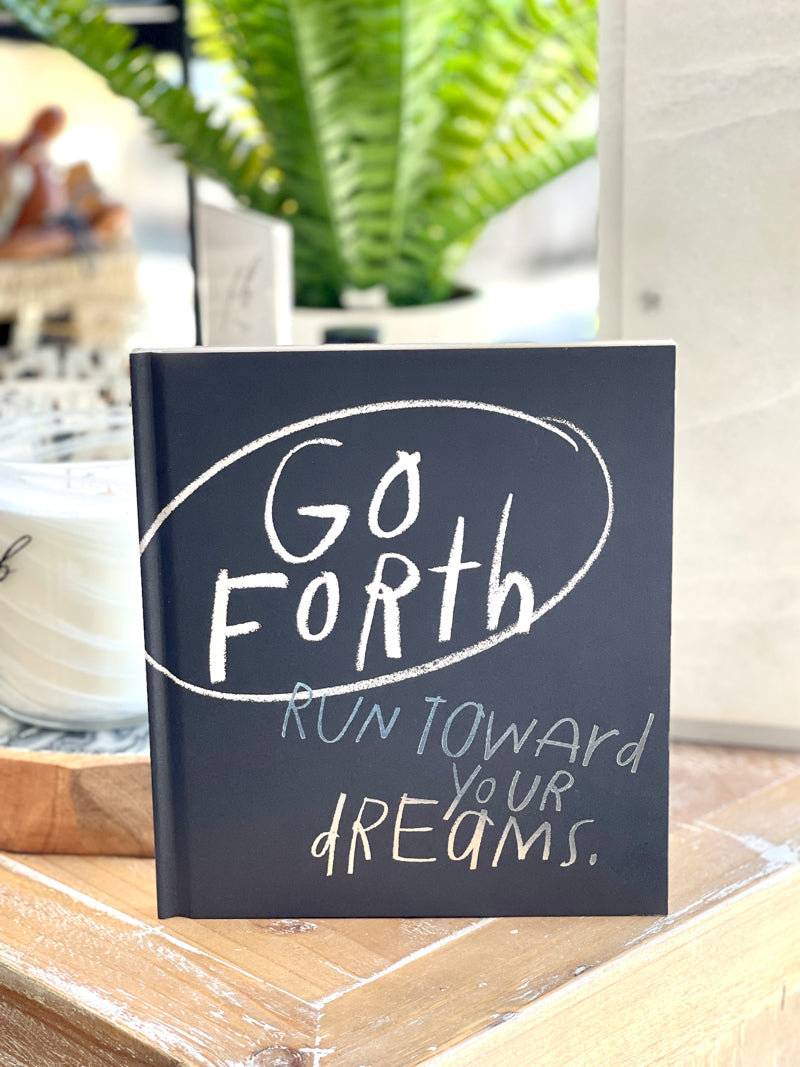 GO
FORth
RUN TOWArd
YOUR
dREAMS.